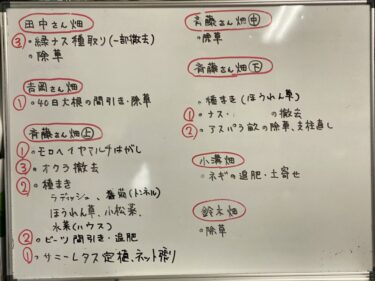 田中さん畑
③・緑ナス種取り(一部撤去)
・除草
吉岡さん畑
①・40日大根の間引き・除草
斉藤さん畑(上)
①・モロヘイヤマルチはがし
③・オクラ撤去
②・種まき
ラディッシュ、春菊(トンネル)
ほうれん草、小松菜、
水菜(ハウス)
②・ビーツ間引き・追肥
①・サニーレタス定植、ネット張り
斉藤さん畑(中)
・除草
斉藤さん畑(下)
・種まき(ほうれん草)
①・ナス・の撤去
②・アスパラ畝の除草、支柱直し
小溝畑
・ネギの追肥・土寄せ
鈴木畑
・除草